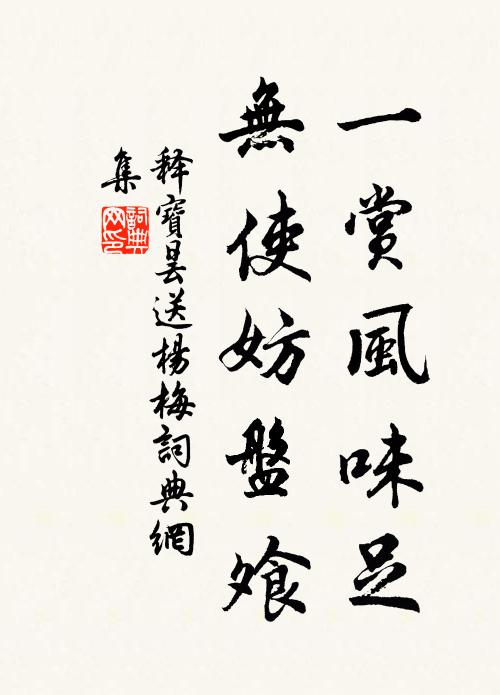 一賞風味足
無使妨盤飧
释寶曇送楊梅詞典網
集
詞典网印